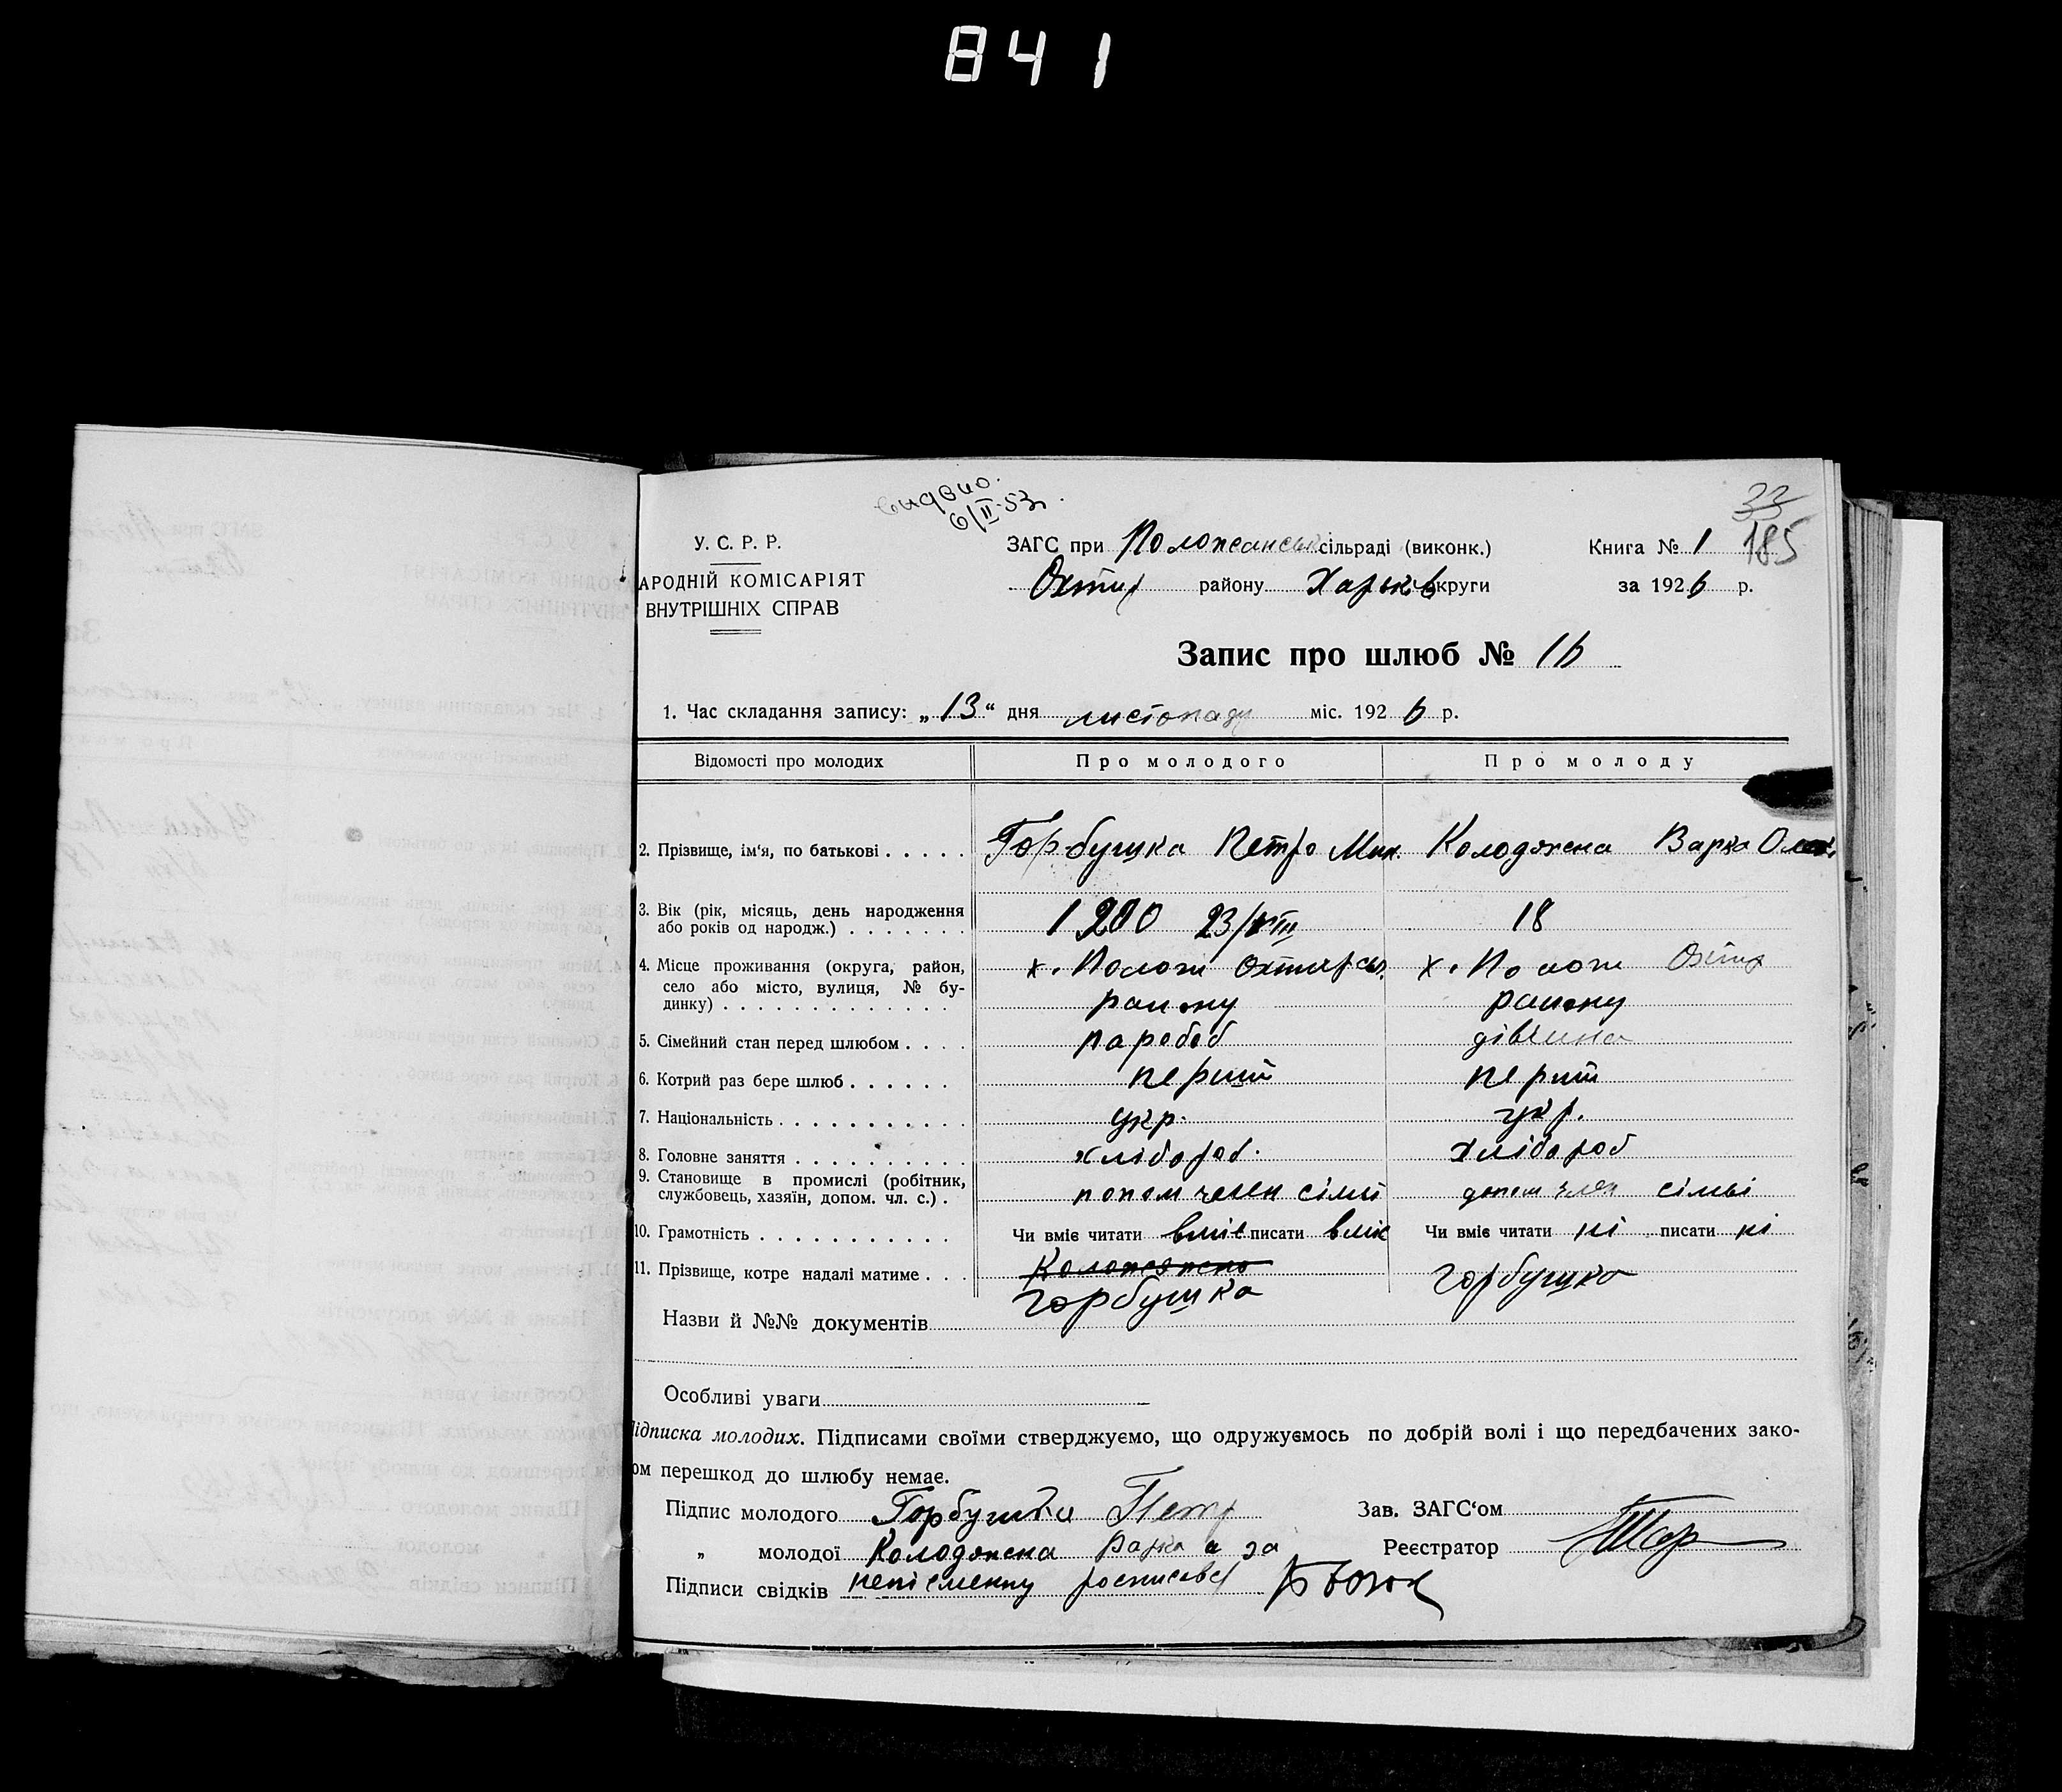 841
видано.
6/II-53.
33
185
У. С. Р. Р.
АРОДНІЙ КОМІСАРІЯТ
ВНУТРІШНІХ СПРАВ
ЗАГС при Положанськ сільраді (виконк.)
Охтир району Харьків округи
Книга № 1
за 1926 р.
Запис про шлюб № 16
1. Час складання запису: „13“ дня листопаду міс. 1926 р.
Відомості про молодих Про молодого Про молоду
2. Прізвище, ім'я, по батькові . . . . . Горбушка Петро Мик. Колодяжна Варка
3. Вік (рік, місяць, день народження
або років од народж.) . . . . . . . 1900 23/VIII 18
4. Місце проживання (округа, район, х. Положи Охтирськ. х. Положи Охтир
село або місто, вулиця, № бу-
динку) . . . . . . . . . . . . . району району
5. Сімейний стан перед шлюбом . . . . паробоб дівчина
6. Котрий раз бере шлюб . . . . . . перший перший
7. Національність . . . . . . . . . . . укр. укр.
8. Головне заняття . . . . . . . . . . хлібороб. Хлібороб
9. Становище в промислі (робітник,
службовець, хазяїн, допом. чл. с.) . попом член сімї допом член сімьі
10. Грамотність . . . . . . . . . . . Чи вміє читати вміє писати вміє Чи вміє читати ні писати ні
11. Прізвище, котре надалі матиме . . .
Горбушка Горбушка
Назви й №№ документів
Особливі уваги
ідписка молодих. Підписами своїми стверджуємо, що одружуємось по добрій волі і що передбачених зако-
ом перешкод до шлюбу немає.
Підпис молодого Горбушка Петр Зав. ЗАГС‘ом
„ молодої Колодяжна Варка а за Реєстратор
Підписи свідків неписьменну росписався